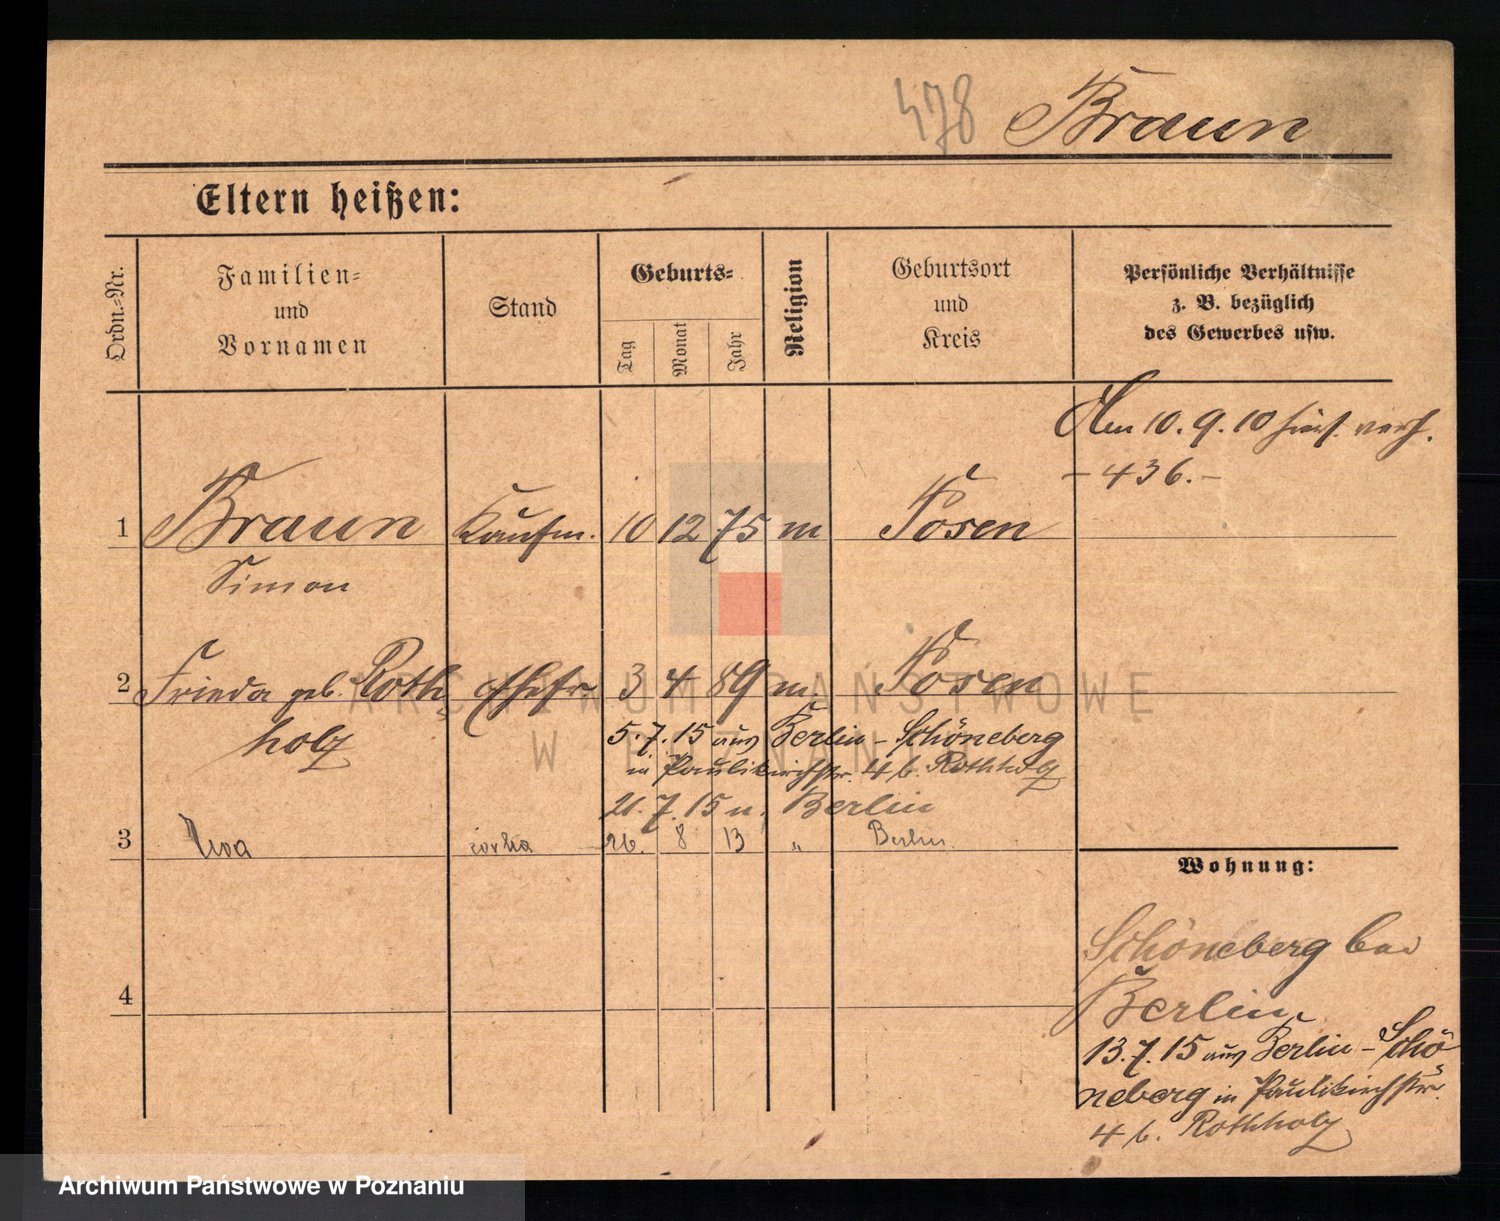 478 Braun
Eltern heißen:
Ordn.-Nr.
Familien-
und
Vornamen
Stand
Geburts-
Tag
Monat
Jahr
Religion
Geburtsort
und
Kreis
Persönliche Verhältnisse
z. B. bezüglich
des Gewerbes usw.
Am 10. 9. 10 verh.
- 436. -
1 Braun Kaufm. 10 12 75 m Posen
Simon
2 Frieda geb. Roth Ehefr. 3 4 89 m Posen
holz
5. 7. 15 aus Berlin - Schöneberg
in Paulikirchstr. 4 b. Rothholz
21. 7. 15 n. Berlin
3 Ewa córka 26. 8 13 " Berlin
4
Wohnung:
Schöneberg bei
Berlin
13. 7. 15 aus Berlin - Schö
neberg in Paulikirchstr.
4 b. Rothholz
ARCHIWUM PAŃSTWOWE
W POZNANIU
Archiwum Państwowe w Poznaniu